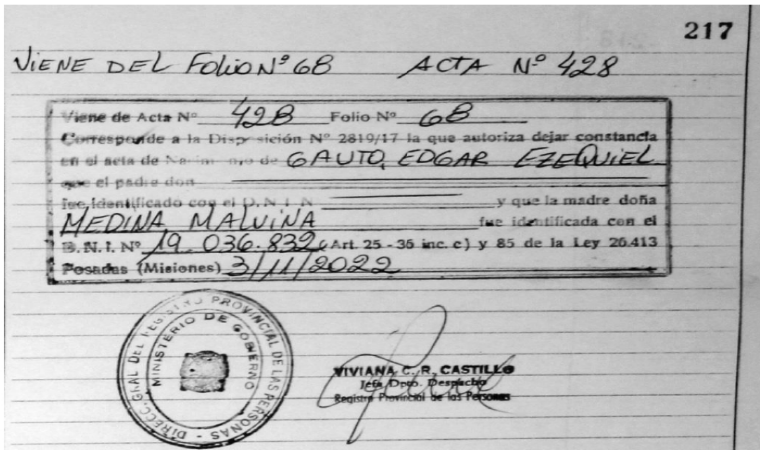 217
VIENE DEL FOLIO Nº 68 ACTA Nº 428
Viene de Acta Nº 428 Folio Nº 68
Corresponde a la Disposición Nº 2819/17 la que autoriza dejar constancia
en el acta de de GAUTO, EDGAR EZEQUIEL
que el padre don
fue identificado con el D.N.I. Nº y que la madre doña
MEDINA MALVINA fue identificada con el
D.N.I. Nº 19.036.832 (Art. 25 - 35 inc. c) y 85 de la Ley 26.413
Posadas (Misiones) 3/11/2022
DIRECC. GRAL DEL REGISTRO PROVINCIAL DE LAS PERSONAS
MINISTERIO DE GOBIERNO
VIVIANA C. R. CASTILLO
Jefa Dpto. Despacho
Registro Provincial de las Personas